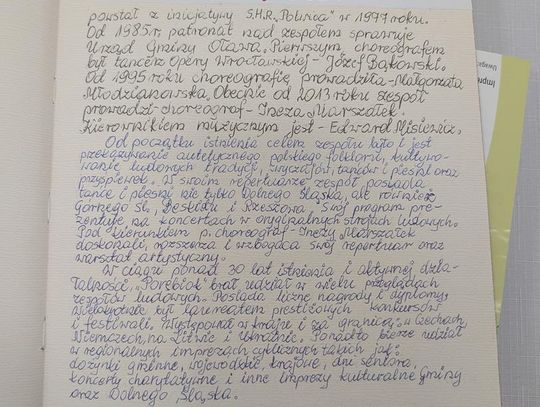 powstał z inicjatywy S.H.R „Polwica" w 1977 roku.
Od 1985r. patronat nad zespołem sprawuje
Urząd Gminy Oława. Pierwszym choreografem
był tancerz Opery Wrocławskiej - Józef Bąkowski.
Od 1995 roku choreografię prowadziła - Małgorzata
Młodzianowska. Obecnie od 2013 roku zespół
prowadzi - choreograf - Ineza Marszałek.
Kierownikiem muzycznym jest - Edward Misiewicz.
Od początku istnienia celem zespołu było i jest
przekazywanie autetycznego polskiego folkloru, kultywo-
wanie ludowych tradycji, zwyczajów, tańców i pieśni oraz
przyśpiewek. W swoim repertuarze zespół posiada
tańce i pieśni nie tylko Dolnego Śląska, ale również
Górnego Śl., Beskidu i Rzeszowa. Swój program pre-
zentuje na koncertach w oryginalnych strojach ludowych.
Pod kierunkiem p. choreograf - Inezy Marszałek
doskonali, rozszerza i wzbogaca swój repertuar oraz
warsztat artystyczny.
W ciągu ponad 30 lat istnienia i aktywnej dzia-
łalności, „Porębiok" brał udział w wielu przeglądach
zespołów ludowych. Posiada liczne nagrody i dyplomy,
wielokrotnie był laureatem prestiżowych konkursów
i festiwali. Występował w kraju i za granicą: w Czechach,
Niemczech, na Litwie i Ukrainie. Ponadto bierze udział
w regionalnych imprezach cyklicznych takich jak:
dożynki gminne, wojewódzkie, krajowe, dni seniora,
koncerty charytatywne i inne imprezy kulturalne Gminy
oraz Dolnego Śląska.
Uwaga: